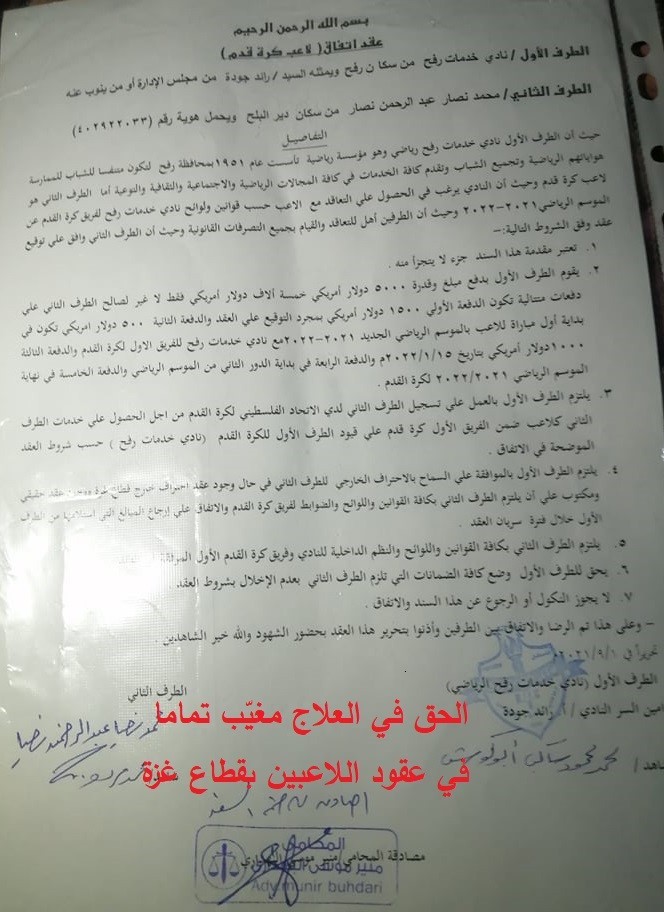 بسم الله الرحمن الرحيم
عقد اتفاق( لاعب كرة قدم )
الطرف الأول/ نادي خدمات رفح من سكان رفح ويمثله السيد/ رائد جودة من مجلس الإدارة أو من ينوب عنه
الطرف الثاني/ محمد نصار عبد الرحمن نصار من سكان دير البلح ويحمل هوية رقم (٤٠٢٩٢٢٠٣٣)
التفاصيل
حيث أن الطرف الأول نادي خدمات رفح رياضي وهو مؤسسة رياضية تأسست عام ١٩٥١بمحافظة رفح لتكون متنفسا للشباب للممارسة
هواياتهم الرياضية وتجميع الشباب وتقدم كافة الخدمات في كافة المجالات الرياضية والاجتماعية والثقافية والتوعية أما الطرف الثاني هو
لاعب كرة قدم وحيث أن النادي يرغب في الحصول علي التعاقد مع الاعب حسب قوانين ولوائح نادي خدمات رفح لفريق كرة القدم عن
الموسم الرياضي٢٠٢١-٢٠٢٢ وحيث أن الطرفين أهل للتعاقد والقيام بجميع التصرفات القانونية وحيث أن الطرف الثاني وافق علي توقيع
عقد وفق الشروط التالية:–
١. تعتبر مقدمة هذا السند جزء لا يتجزأ منه .
٢. يقوم الطرف الأول بدفع مبلغ وقدرة ٥٠٠٠ دولار أمريكي خمسة ألاف دولار أمريكي فقط لا غير لصالح الطرف الثاني علي
دفعات متتالية تكون الدفعة الأولي ١٥٠٠ دولار أمريكي بمجرد التوقيع علي العقد والدفعة الثانية ٥٠٠ دولار امريكي تكون في
بداية أول مباراة للاعب بالموسم الرياضي الجديد ٢٠٢١-٢٠٢٢مع نادي خدمات رفح للفريق الاول لكرة القدم والدفعة الثالثة
١٠٠٠دولار أمريكي بتاريخ ٢٠٢٢/١/١٥م والدفعة الرابعة في بداية الدور الثاني من الموسم الرياضي والدفعة الخامسة في نهاية
الموسم الرياضي ٢٠٢٢/٢٠٢١ لكرة القدم .
٣. يلتزم الطرف الأول بالعمل علي تسجيل الطرف الثاني لدي الاتحاد الفلسطيني لكرة القدم من اجل الحصول علي خدمات الطرف
الثاني كلاعب ضمن الفريق الأول كرة قدم علي قيود الطرف الأول للكرة القدم (نادي خدمات رفح ) حسب شروط العقد
الموضحة في الاتفاق .
٤. يلتزم الطرف الأول بالموافقة علي السماح بالاحتراف الخارجي للطرف الثاني في حال وجود عقد احتراف خارج قطاع غزة عقد حقيقي
ومكتوب علي أن يلتزم الطرف الثاني بكافة القوانين واللوائح والضوابط لفريق كرة القدم والاتفاق علي إرجاع المبالغ التي استلامها من الطرف
الأول خلال فترة سريان العقد .
٥. يلتزم الطرف الثاني بكافة القوانين واللوائح والنظم الداخلية للنادي وفريق كرة القدم الأول
٦. يحق للطرف الأول وضع كافة الضمانات التي تلزم الطرف الثاني بعدم الإخلال بشروط العقد
٧. لا يجوز النكول أو الرجوع عن هذا السند والاتفاق .
– وعلى هذا تم الرضا والاتفاق بين الطرفين وأذنوا بتحرير هذا العقد بحضور الشهود والله خير الشاهدين .
تحريرا في ٢٠٢١/٩/١
الطرف الأول (نادي خدمات رفح الرياضي)
الطرف الثاني
امين السر النادي / أ. رائد جودة
الحق في العلاج مغيّب تماما
في عقود اللاعبين بقطاع غزة
مصادقة المحامي منير
المحامي
Adv.munir buhdari